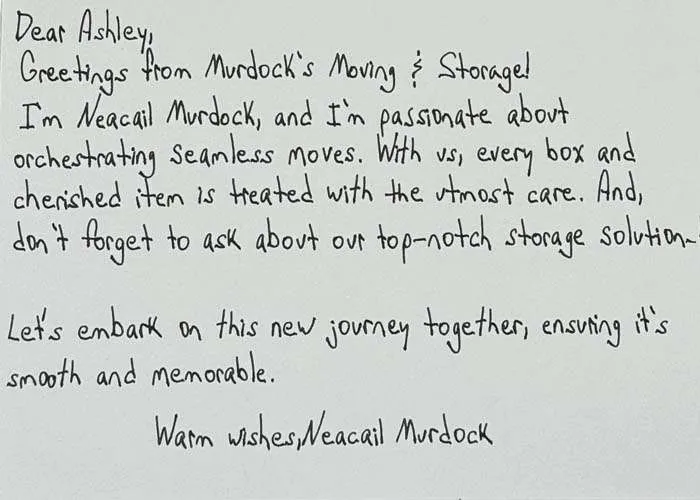 Dear Ashley,
Greetings from Murdock's Moving & Storage!
I'm Neacail Murdock, and I'm passionate about
orchestrating seamless moves. With us, every box and
cherished item is treated with the utmost care. And,
don't forget to ask about our top-notch storage solution
Let's embark on this new journey together, ensuring it's
smooth and memorable.
Warm wishes, Neacail Murdock